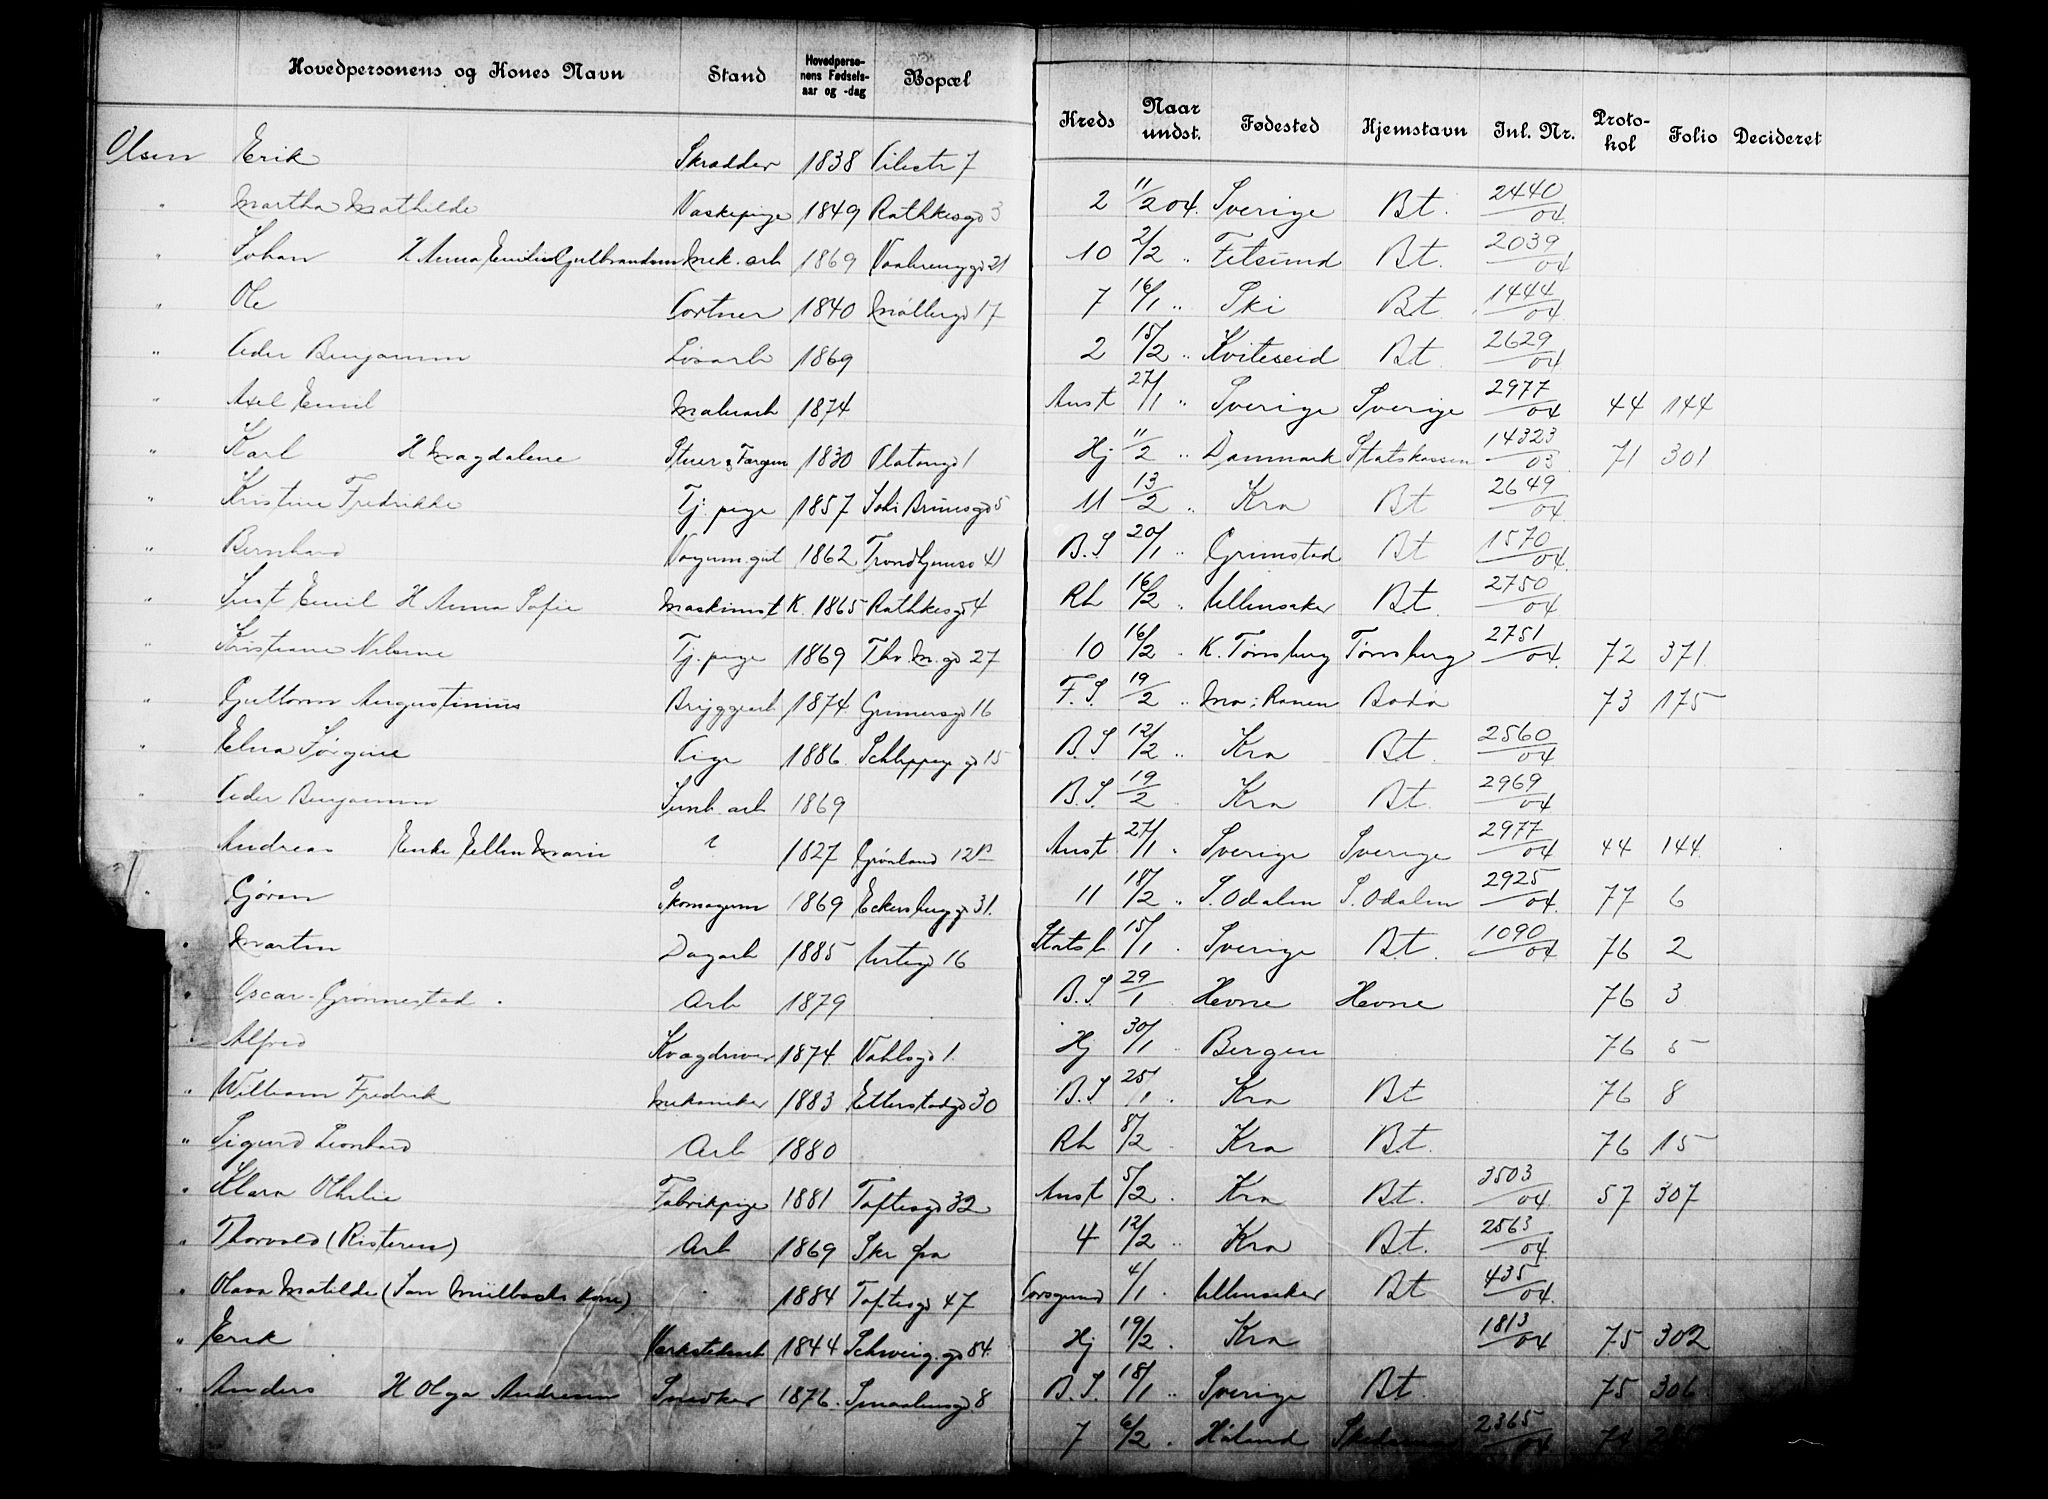 Hovedpersonens og Kones Navn Stand Hovedpersonens Fødselsaar og -dag Bopæl Kreds Naar undst. Fødested Hjemstavn Inl. Nr. Protokol Folio Decideret
Olsen Erik Skrædder 1838 Pilestr 7 2 11/2 04. Sverige Bt. 2440/04
" Martha Mathilde Vaskepige 1849 Rathkesgd 3 10 2/2 " Fetsund Bt. 2039/04
" Johan H Anna Emilie Gulbrandsen Mek. arb 1869 Vaalerenggd 21 7 16/1 " Ski Bt 1444/04
" Ole Portner 1840 Møllergd 17 2 15/2 " Kviteseid Bt. 2629/04
" Peder Benjamin Løsarb 1869 Anst 27/1 " Sverige Sverige 2977/04 44 144
" Axel Emil Malerarb 1874 Hj 11/2 " Danmark Statskassen 14323/03 71 301
" Karl H Magdalene 1830 Platousgd 1 11 13/2 " Kra Bt 2649/04
" Kristine Fredrikke Tj. pige 1857 5 B.S 20/1 " Grimstad Bt 1570/04
" Bernhard 1862 41 Rh 16/2 " Ullensaker Bt. 2750/04
" Just Emil H Anna Sofie Maskinist K. 1865 Rathkesgd 4 10 16/2 " K. Tønsberg Tønsberg 2751/04 72 371
" Kristiane Nilsine Tj. pige 1869 Thv. M. gd 27 F. S. 19/2 " Mo i Ranen Bodø 73 175
" Guttorm Augustinius Bryggearb 1874 Grünersgd 16 B.S 12/2 " Kra Bt. 2560/04
" Elna Jørgine Pige 1886 Schleppegr gd 15 B.S. 19/2 " Kra Bt. 2969/04
" Peder Benjamin Jernb. arb 1869 Anst 27/1 " Sverige Sverige 2977/04 44 144
Andreas Enke Ellen Marie 1827 Grønland 12 B 11 18/2 " S. Odalen S. Odalen 2925/04 77 6
" Gjøran Skomagerm 1869 Eckersberggd 31. Stats b. 15/1 " Sverige Bt. 1090/04 76 2
" Martin Dagarb 1885 Urtegd 16 B.S 29/1 Hevne Hevne 76 3
" Oscar Grønnestad Arb 1879 Hj 30/1 Bergen 76 5
" Alfred Kvægdriver 1874 Vahlsgd 1. B.S 25/1 " Kra Bt 76 8
" William Fredrik Mekaniker 1883 Etterstadgd 30 Rh 8/2 Kra Bt. 76 15
" Sigurd Leonhard Arb 1880 Anst 5/2 " Kra Bt. 3503/04 57 307
" Klara Othilie Fabrikpige 1881 Toftesgd 32 4 12/2 " Kra Bt. 2563/04
" Thorvald (Risteren) Arb 1869 Porsgrund 4/1 " Ullensaker Bt 435/04
" Olava Matilde (Jan Müllbachs Kone) 1884 Toftesgd 47 Hj 19/2 " Kra 1813/04 75 302
" Erik Verkstedsarb 1844 Schweiggd 84 B.S. 18/1 " Sverige Bt. 75 306
" Anders H Olga Andresen Snedker 1876 Smaalensgd 8 7 6/2 " Høland 2365/04 74